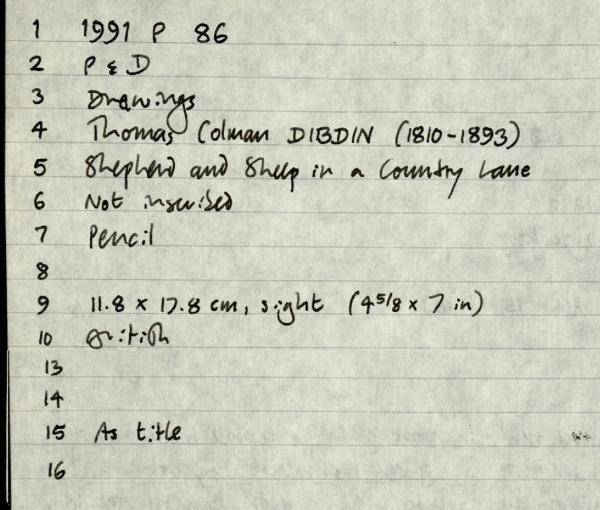 1 1991 P 86
2 P & D
3 Drawings
4 Thomas Colman DIBDIN (1810-1893)
5 Shepherd and Sheep in a Country Lane
6 Not inscribed
7 Pencil
8
9 11.8 x 17.8 cm, sight (4 5/8 x 7 in)
10 British
13
14
15 As title
16